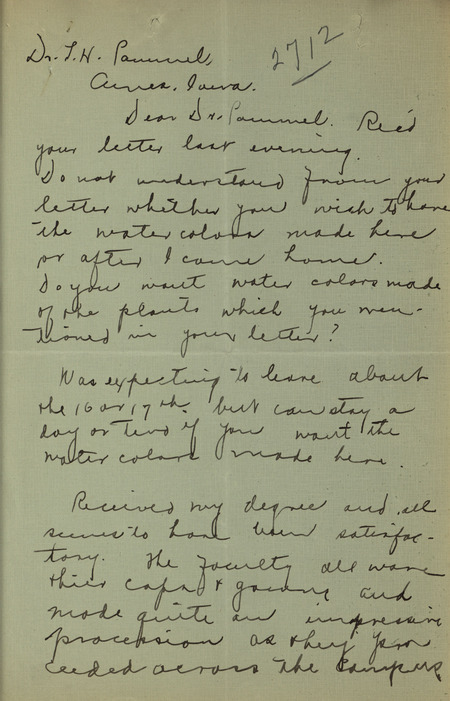 2712
Dr. L. H. Pammel,
Ames, Iowa.
Dear Dr. Pammel. Rec'd
your letter last evening.
Do not understand from your
letter whether you wish to have
the water colors made here
or after I come home.
Do you want water colors made
of the plants which you men-
tioned in your letter?
Was expecting to leave about
the 16 or 17th. but can stay a
day or two if you want the
water colors made here.
Received my degree and all
seems to have been satisfac-
tory. The faculty all wore
thier caps & gowns and
made quite an impressive
procession as they pro
ceeded across the campus